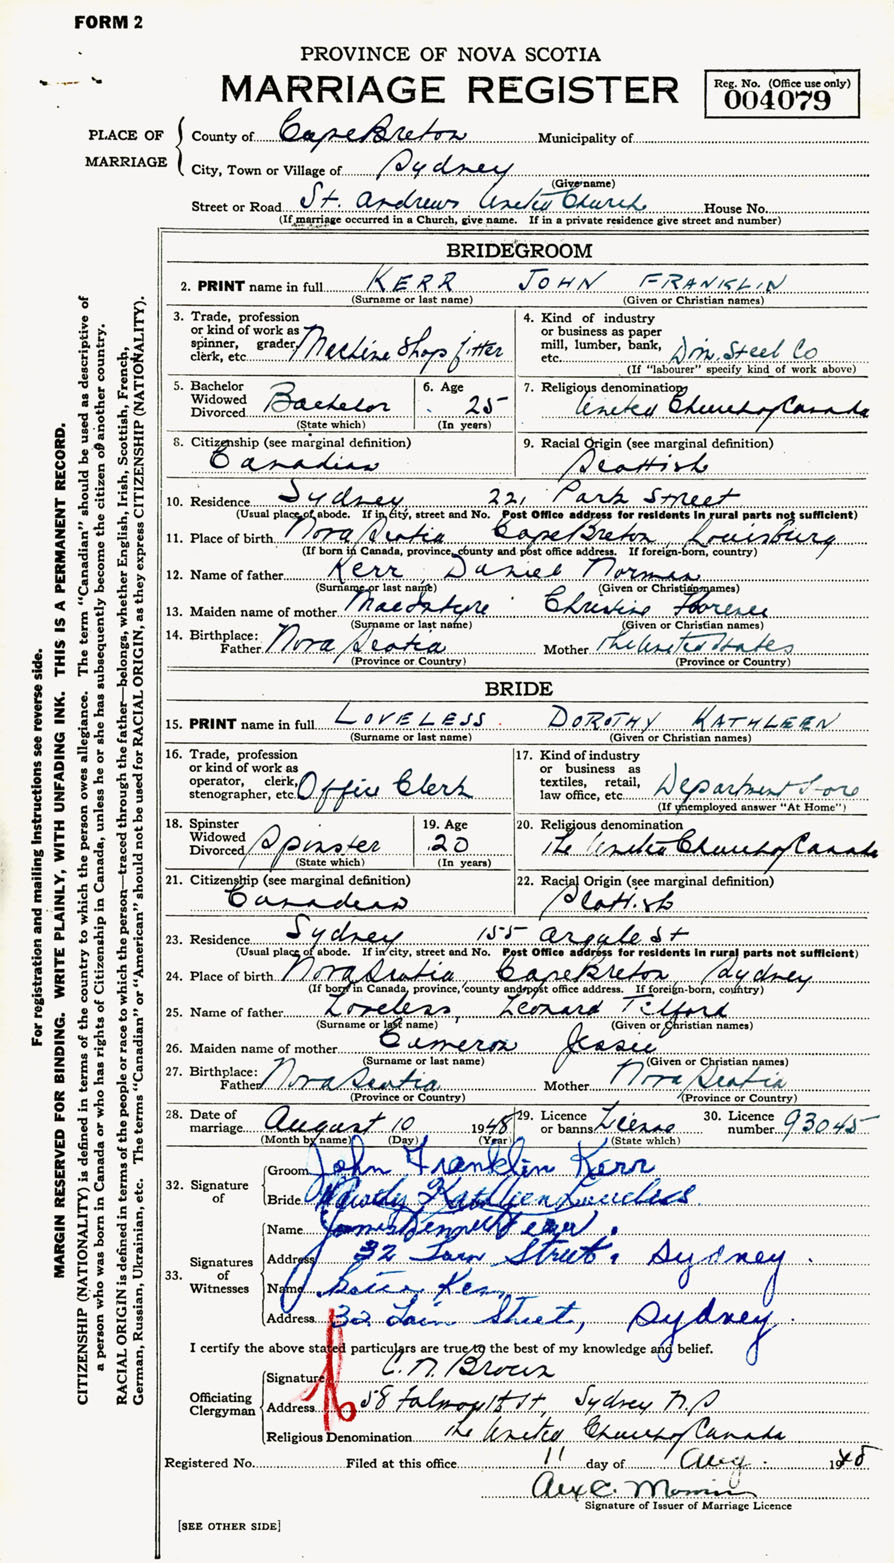 FORM 2
PROVINCE OF NOVA SCOTIA
MARRIAGE REGISTER
Reg. No. (Office use only)
004079
PLACE OF MARRIAGE
County of Cape Breton Municipality of
City, Town or Village of Sydney
(Give name)
Street or Road St. Andrews United Church House No.
(If marriage occurred in a Church, give name. If in a private residence give street and number)
BRIDEGROOM
2. PRINT name in full KERR JOHN FRANKLIN
(Surname or last name) (Given or Christian names)
3. Trade, profession or kind of work as spinner, grader, clerk, etc. Machine Shop fitter
4. Kind of industry or business as paper mill, lumber, bank, etc. Dom. Steel Co
(If "labourer" specify kind of work above)
5. Bachelor Widowed Divorced Bachelor
(State which)
6. Age 25
(In years)
7. Religious denomination United Church of Canada
8. Citizenship (see marginal definition)
Canadian
9. Racial Origin (see marginal definition)
Scottish
10. Residence Sydney 221 Park Street
(Usual place of abode. If in city, street and No. Post Office address for residents in rural parts not sufficient)
11. Place of birth Nova Scotia Cape Breton Louisburg
(If born in Canada, province, county and post office address. If foreign-born, country)
12. Name of father Kerr Daniel Norman
(Surname or last name) (Given or Christian names)
13. Maiden name of mother MacIntyre Christine Florence
(Surname or last name) (Given or Christian names)
14. Birthplace: Father Nova Scotia Mother The United States
(Province or Country) (Province or Country)
BRIDE
15. PRINT name in full LOVELESS DOROTHY KATHLEEN
(Surname or last name) (Given or Christian names)
16. Trade, profession or kind of work as operator, clerk, stenographer, etc. Office Clerk
17. Kind of industry or business as textiles, retail, law office, etc. Department Store
(If unemployed answer "At Home")
18. Spinster Widowed Divorced Spinster
(State which)
19. Age 20
(In years)
20. Religious denomination The United Church of Canada
21. Citizenship (see marginal definition)
Canadian
22. Racial Origin (see marginal definition)
Scottish
23. Residence Sydney 155 Argyle St
(Usual place of abode. If in city, street and No. Post Office address for residents in rural parts not sufficient)
24. Place of birth Nova Scotia Cape Breton, Sydney
(If born in Canada, province, county and post office address. If foreign-born, country)
25. Name of father Loveless, Leonard Tilford
(Surname or last name) (Given or Christian names)
26. Maiden name of mother Cameron Jessie
(Surname or last name) (Given or Christian names)
27. Birthplace: Father Nova Scotia Mother Nova Scotia
(Province or Country) (Province or Country)
28. Date of marriage August 10 1948
(Month by name) (Day) (Year)
29. Licence or banns License
(State which)
30. Licence number 93045
32. Signature of
Groom John Franklin Kerr
Bride Dorothy Kathleen Loveless
33. Signatures of Witnesses
Name James
Address 32 Street, Sydney
Name Kerr
Address 32 Street, Sydney
I certify the above stated particulars are true to the best of my knowledge and belief.
Officiating Clergyman
Signature C. N. Brown
Address 58 Falmouth St, Sydney N.S
Religious Denomination The United Church of Canada
Registered No. Filed at this office 11 day of Aug. 1948
Alex C.
Signature of Issuer of Marriage Licence
[SEE OTHER SIDE]
For registration and mailing instructions see reverse side.
MARGIN RESERVED FOR BINDING. WRITE PLAINLY, WITH UNFADING INK. THIS IS A PERMANENT RECORD.
CITIZENSHIP (NATIONALITY) is defined in terms of the country to which the person owes allegiance. The term "Canadian" should be used as descriptive of
a person who was born in Canada or who has rights of Citizenship in Canada, unless he or she has subsequently become the citizen of another country.
RACIAL ORIGIN is defined in terms of the people or race to which the person—traced through the father—belongs, whether English, Irish, Scottish, French,
German, Russian, Ukrainian, etc. The terms "Canadian" or "American" should not be used for RACIAL ORIGIN, as they express CITIZENSHIP (NATIONALITY).